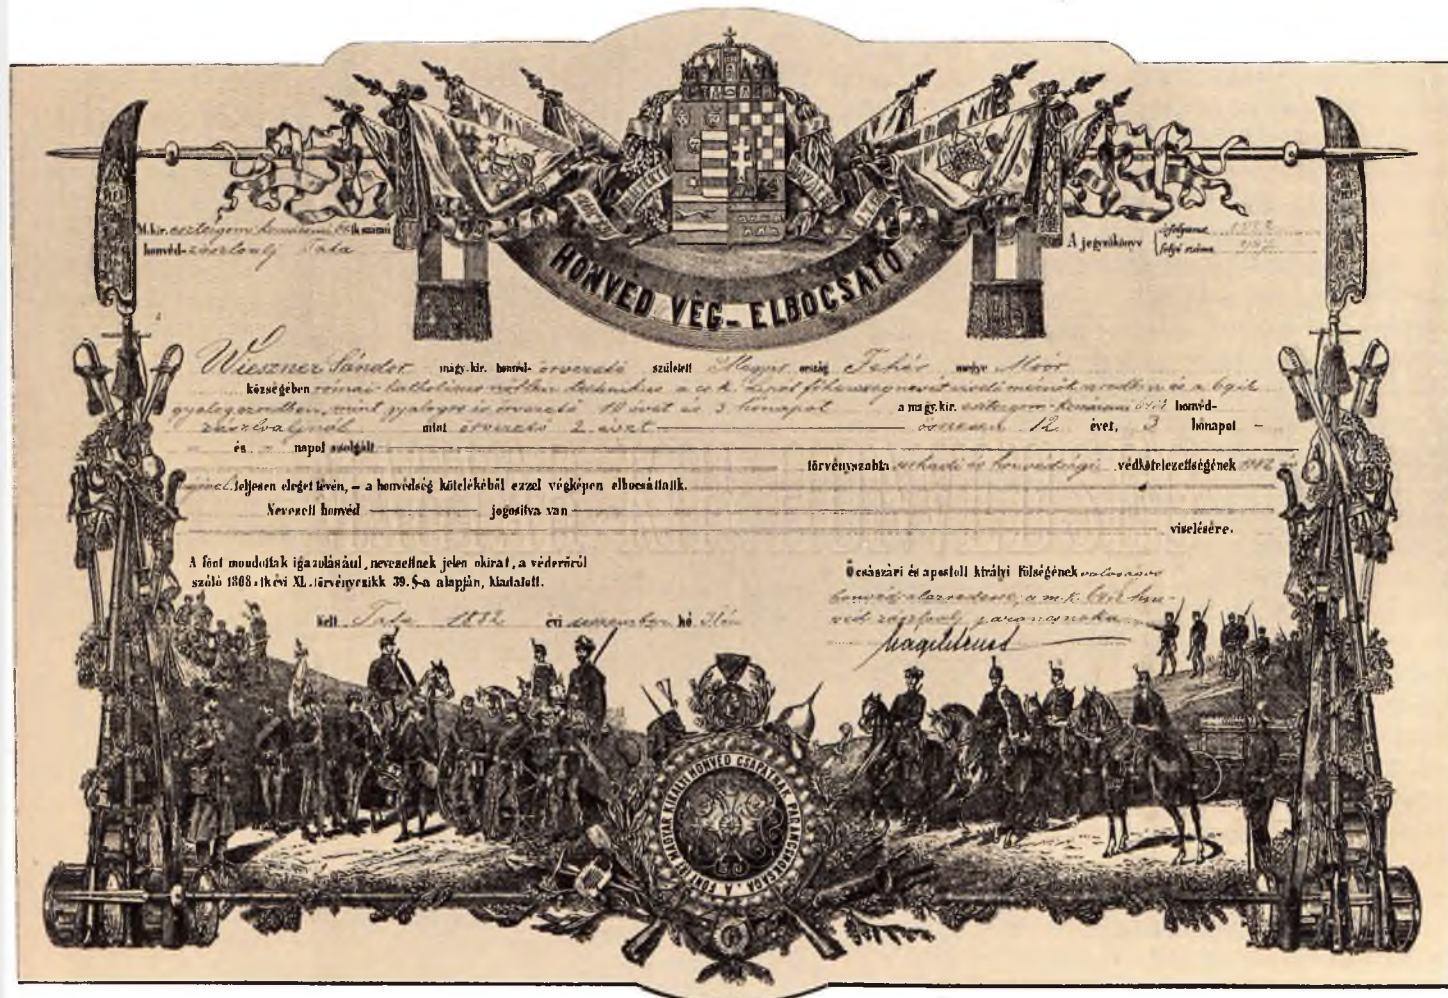 M. kir. esztergom komáromi 64ik számú
honvéd-zászlóalj Tata
A jegyzőkönyv
évfolyama 1882
folyó száma
HONVÉD VÉG-ELBOCSÁTÓ
Wieszner Sándor magy. kir. honvéd- örvezető született Magyar ország Fehér megye Moór
községében római katholikus nőtlen technikus a cs. k. Lipót főherczeg nevét viselő mérnök ezredben és a
gyalogezredben, mint gyalogos és örvezető 10 évet és 3 hónapot a magy. kir. esztergom-komáromi 64ik honvéd-
zászlóaljnál mint örvezető 2 évet összesen 12 évet, 3 hónapot –
és – napot szolgált
törvényszabta sorhadi és honvédségi védkötelezettségének 1882 év
teljesen eleget tévén, – a honvédség kötelékéből ezzel végképen elbocsáttatik.
Nevezett honvéd jogosítva van
viselésére.
A fönt mondottak igazolásául, nevezettnek jelen okirat, a véderőről
szóló 1868-ik évi XL. törvényczikk 39. §-a alapján, kiadatott.
Kelt Tata 1882 évi hó 31én
Ő császári és apostoli királyi Fölségének valóságos
honvéd alezredese, a m. k. 64ik hon-
véd zászlóalj parancsnoka
A FÖNTI MAGYAR KIRÁLYI HONVÉD CSAPATNAK PARANCSNOKSÁGA